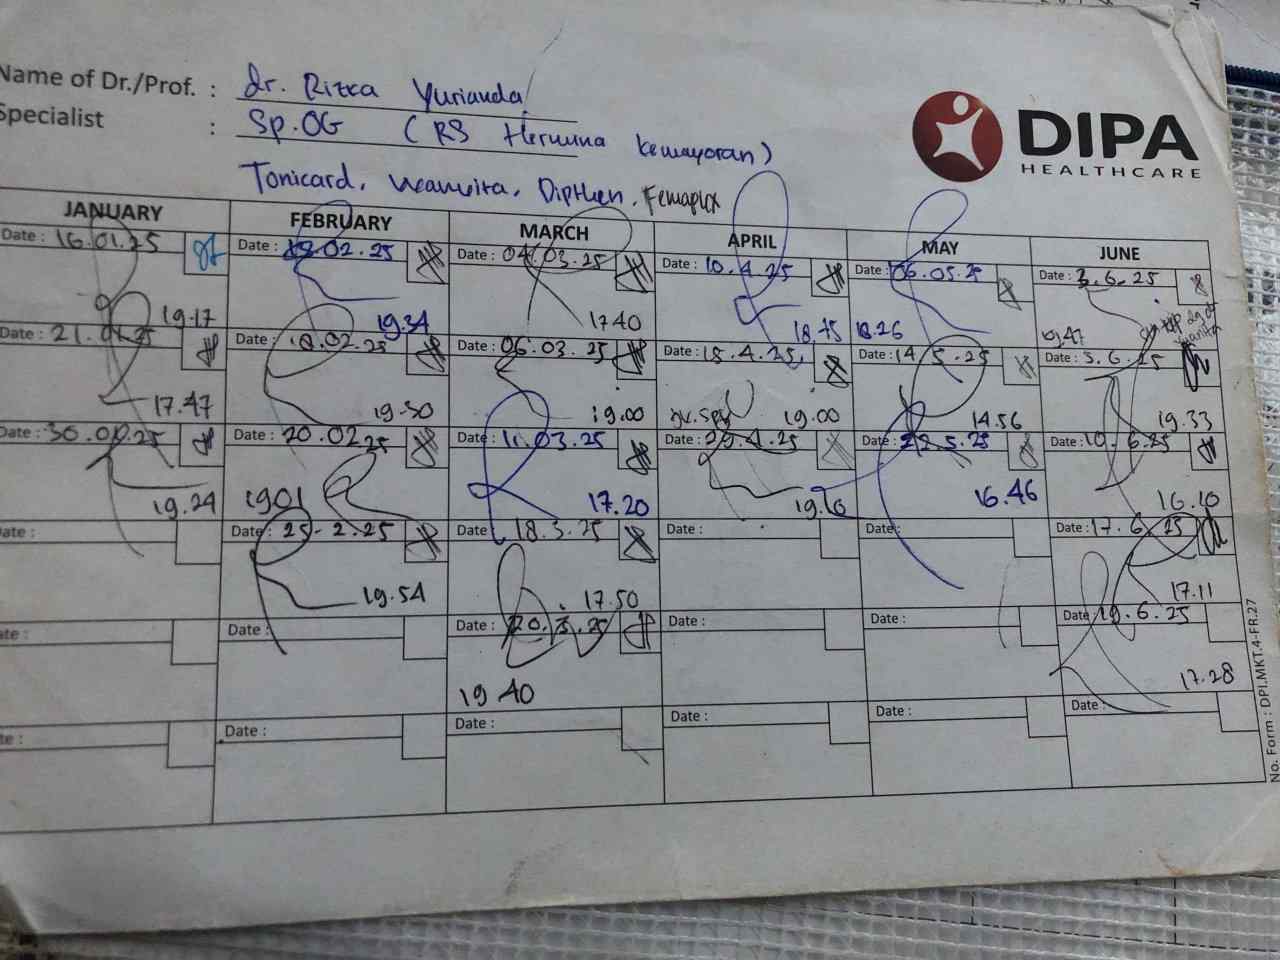 Name of Dr./Prof. : dr. Rizka Yurianda
Specialist : Sp.OG (RS Hermina Kemayoran)
Tonicard, Dipthen, Femaplex
DIPA
HEALTHCARE
JANUARY FEBRUARY MARCH APRIL MAY JUNE
Date : 16.01.25 Date : 02.25 Date : 04.03.25 Date : 10.4.25 Date : 06.05.25 Date : 3.6.25
19.17 19.34 17.40 18.45 18.26 19.47
Date : 21.01.25 Date : 18.02.25 Date : 06.03.25 Date : 15.4.25 Date : 14.5.25 Date : 5.6.25
17.47 19.30 19.00 19.00 14.56 19.33
Date : 30.01.25 Date : 20.02.25 Date : 11.03.25 Date : 29.4.25 Date : 22.5.25 Date : 10.6.25
19.24 19.01 17.20 19.16 16.46 16.10
Date : Date : 25-2.25 Date : 18.3.25 Date : Date : Date : 17.6.25
19.54 17.50 17.11
Date : Date : Date : 20.3.25 Date : Date : Date : 19.6.25
19 40 17.28
Date : Date : Date : Date : Date : Date :
No. Form : DPI.MKT.4-FR.27